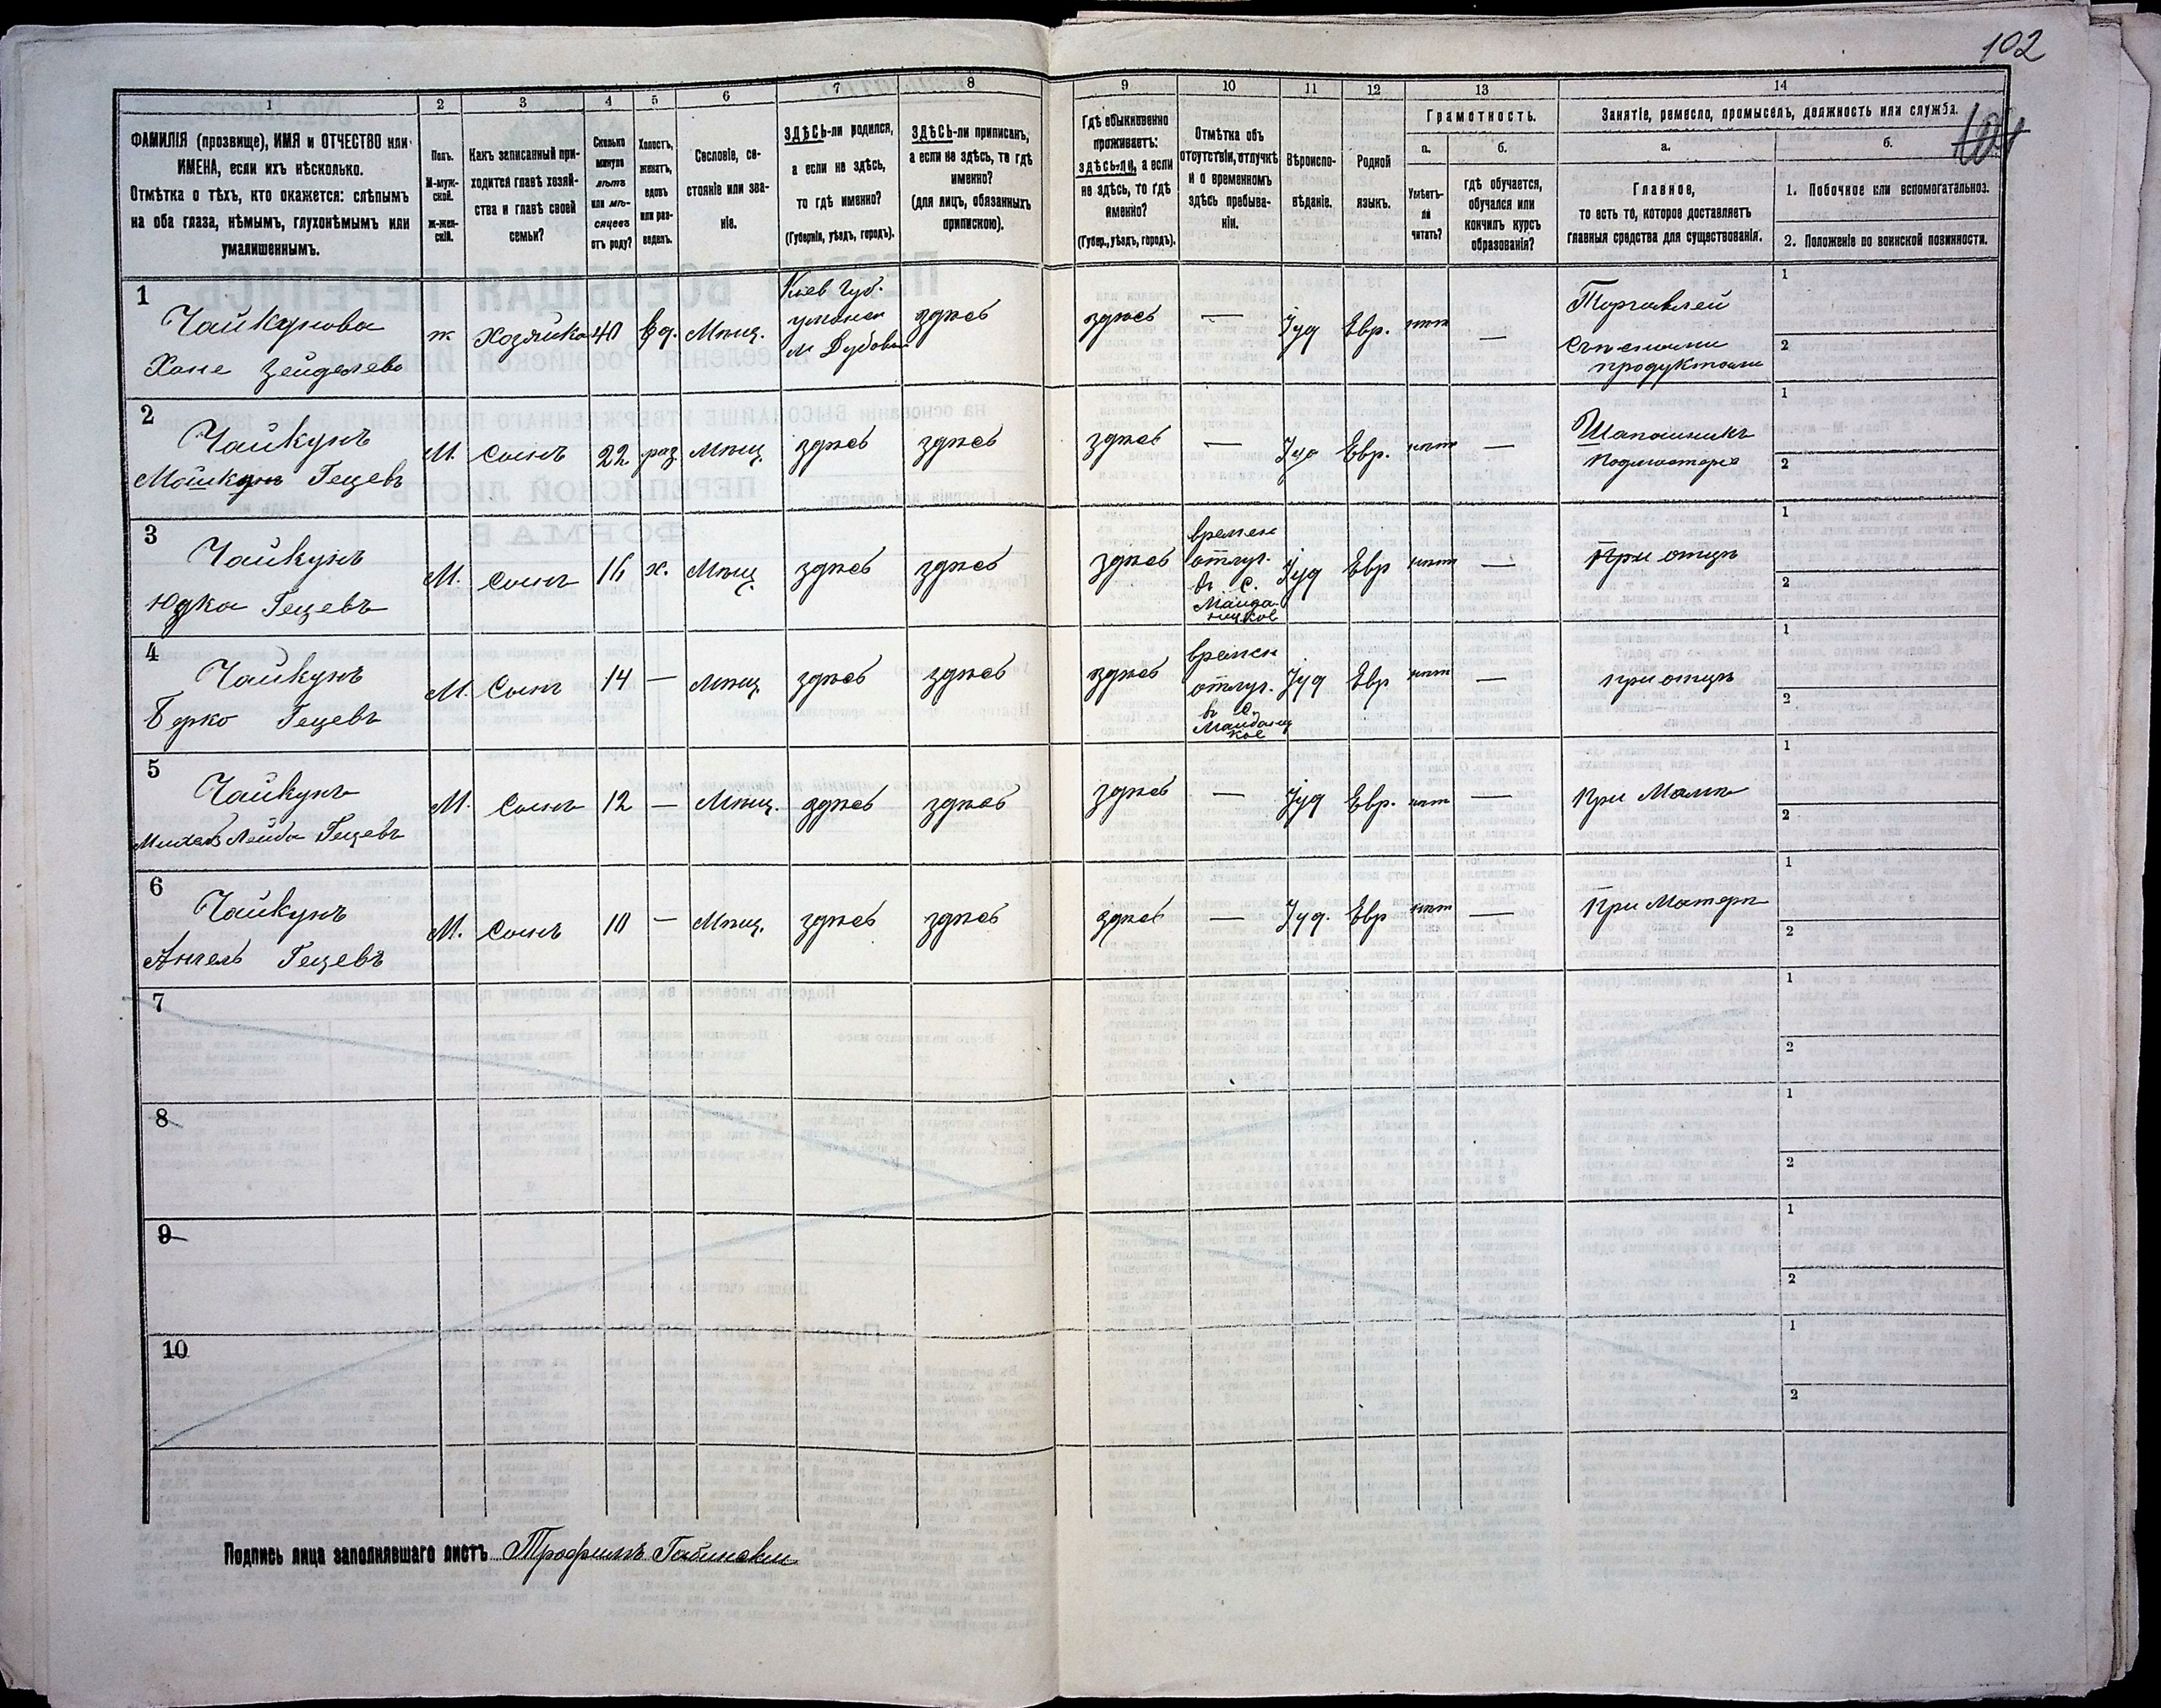 102
1 2 3 4 5 6 7 8 9 10 11 12 13 14
ФАМИЛІЯ (прозвище), ИМЯ и ОТЧЕСТВО или
ИМЕНА, если ихъ нѣсколько.
Отмѣтка о тѣхъ, кто окажется: слѣпымъ
на оба глаза, нѣмымъ, глухонѣмымъ или
умалишеннымъ.
Полъ.
М-муж-
ской.
Ж-жен-
скій.
Какъ записанный при-
ходится главѣ хозяй-
ства и главѣ своей
семьи?
Сколько
минуло
лѣтъ
или мѣ-
сяцевъ
отъ роду?
Холостъ,
женатъ,
вдовъ
или раз-
веденъ.
Сословіе, со-
стояніе или зва-
ніе.
ЗДѢСЬ-ли родился,
а если не здѣсь,
то гдѣ именно?
(Губернія, уѣздъ, городъ).
ЗДѢСЬ-ли приписанъ,
а если не здѣсь, то гдѣ
именно?
(для лицъ, обязанныхъ
припискою).
Гдѣ обыкновенно
проживаетъ:
здѣсь-ли, а если
не здѣсь, то гдѣ
именно?
(Губер., уѣздъ, городъ).
Отмѣтка объ
отсутствіи, отлучкѣ
и о временномъ
здѣсь пребыва-
ніи.
Вѣроиспо-
вѣданіе.
Родной
языкъ.
Грамотность.
а.
Умѣетъ-
ли
читать?
б.
гдѣ обучается,
обучался или
кончилъ курсъ
образованія?
Занятіе, ремесло, промыселъ, должность или служба.
а.
Главное,
то есть то, которое доставляетъ
главныя средства для существованія.
б.
1. Побочное или вспомогательное.
2. Положеніе по воинской повинности.
1
Чайкунова
Хане Зейделева
ж Хозяйка 40 вд. Мѣщ.
Кіев Губ.
м Дубова
здѣсь
здѣсь — Іуд Евр. нѣт —
Торговлей
Съѣсными
продуктами
1
2
2
Чайкунъ
Гецевъ
М. Сынъ 22 раз Мѣщ. здѣсь здѣсь
здѣсь — Іуд Евр. нѣт —
Шапошникъ
Подмастерье
1
2
3
Чайкунъ
Юдка Гецевъ
М. Сынъ 16 х. Мѣщ. здѣсь здѣсь
здѣсь
времен
отлуч.
въ с.
Іуд Евр нѣт —
При отцѣ
1
2
4
Чайкунъ
Берко Гецевъ
М. Сынъ 14 — Мѣщ. здѣсь здѣсь
здѣсь
времен
отлуч.
въ с.
Майданец
кое
Іуд Евр нѣт —
при отцѣ
1
2
5
Чайкунъ
Лейба Гецевъ
М. Сынъ 12 — Мѣщ. здѣсь здѣсь
здѣсь — Іуд Евр. нѣт —
При
1
2
6
Чайкунъ
Гецевъ
М. Сынъ 10 — Мѣщ. здѣсь здѣсь
здѣсь — Іуд. Евр нѣт —
При Матери
1
2
7
1
2
8
1
2
9
1
2
10
1
2
Подпись лица заполнявшаго листъ Трофимъ